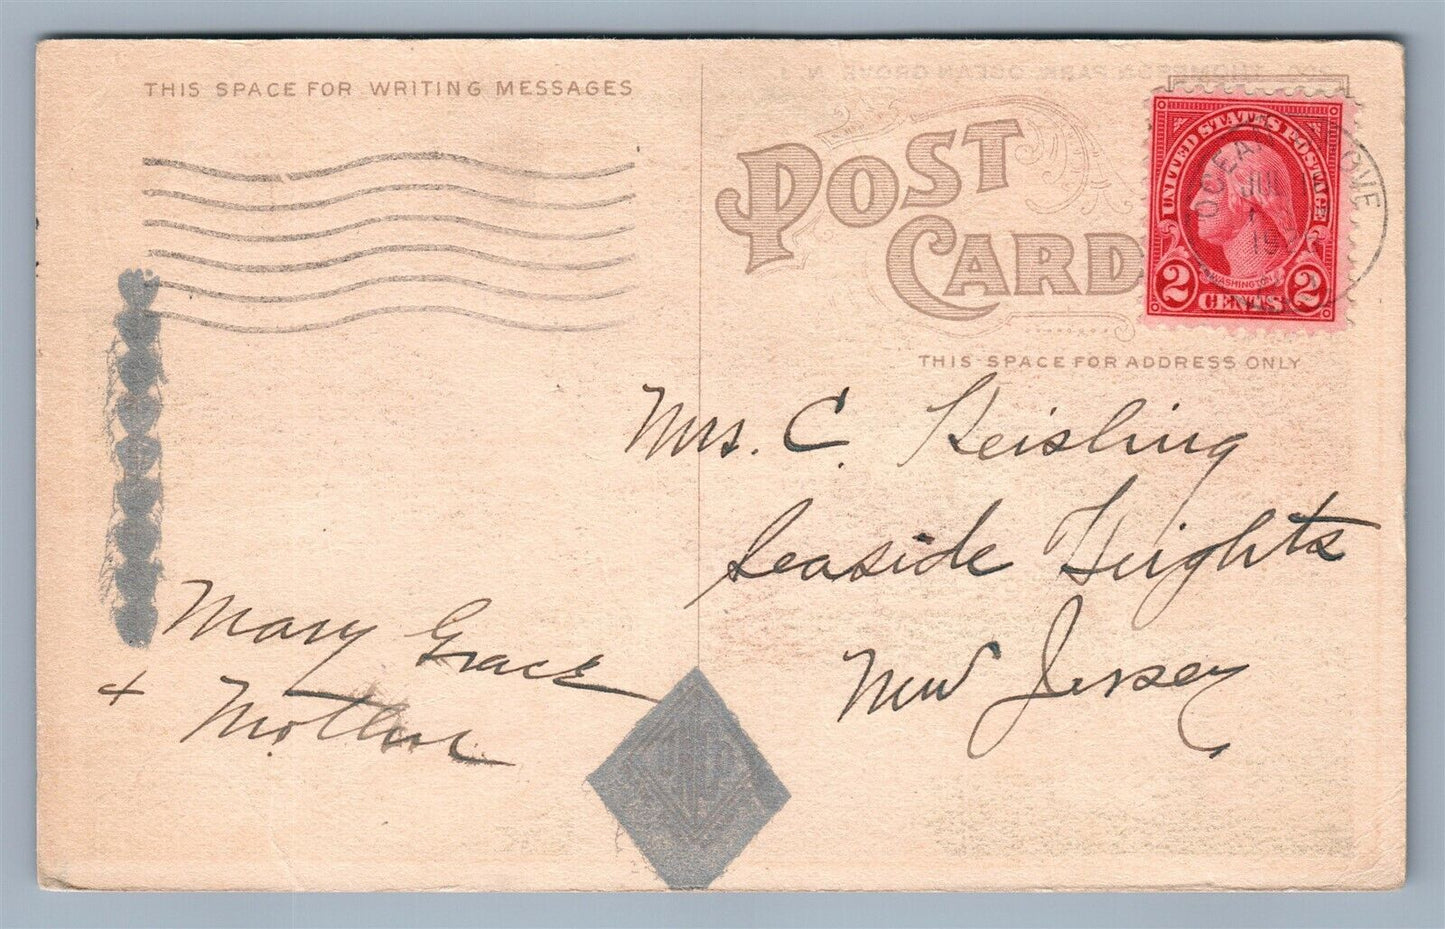 THIS SPACE FOR WRITING MESSAGES
POST
CARD
UNITED STATES POSTAGE
WASHINGTON
2 CENTS 2
OCEAN GROVE
JUL
19
THIS SPACE FOR ADDRESS ONLY
Mrs. C. Keisling
Seaside Heights
New Jersey
Mary Grace
+ Mother